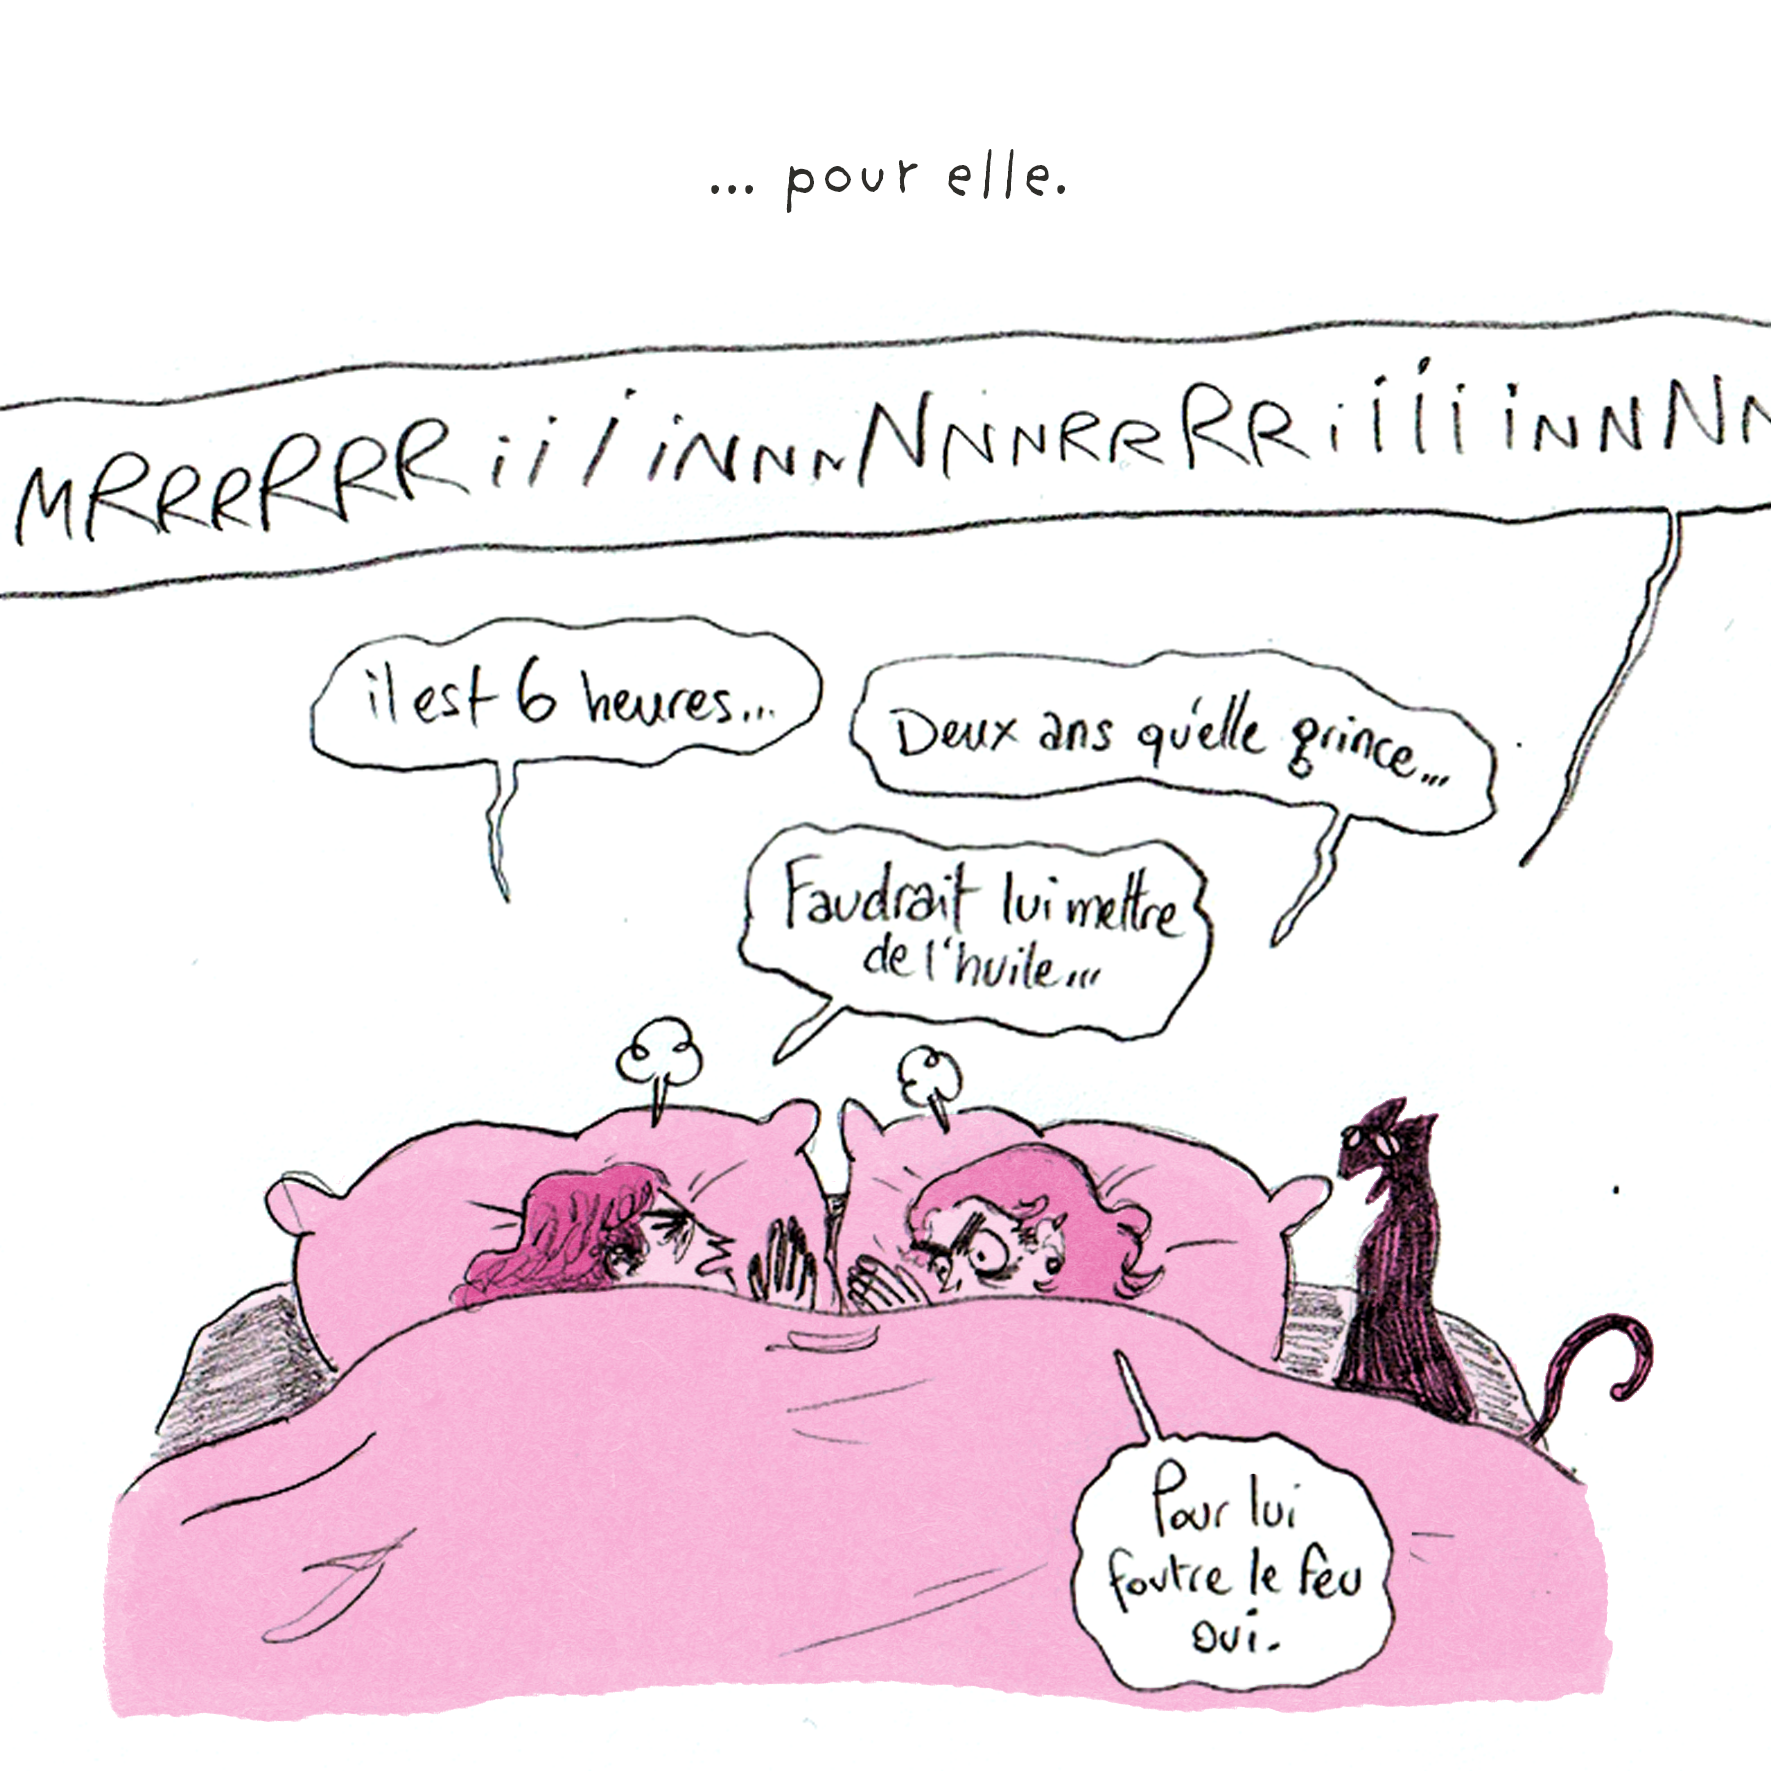 ... pour elle.
MRRRRRRiiiiNNNNNNNNRRRRiiiiiNNNNN
il est 6 heures...
Deux ans qu'elle grince...
Faudrait lui mettre
de l'huile...
Pour lui
foutre le feu
oui.